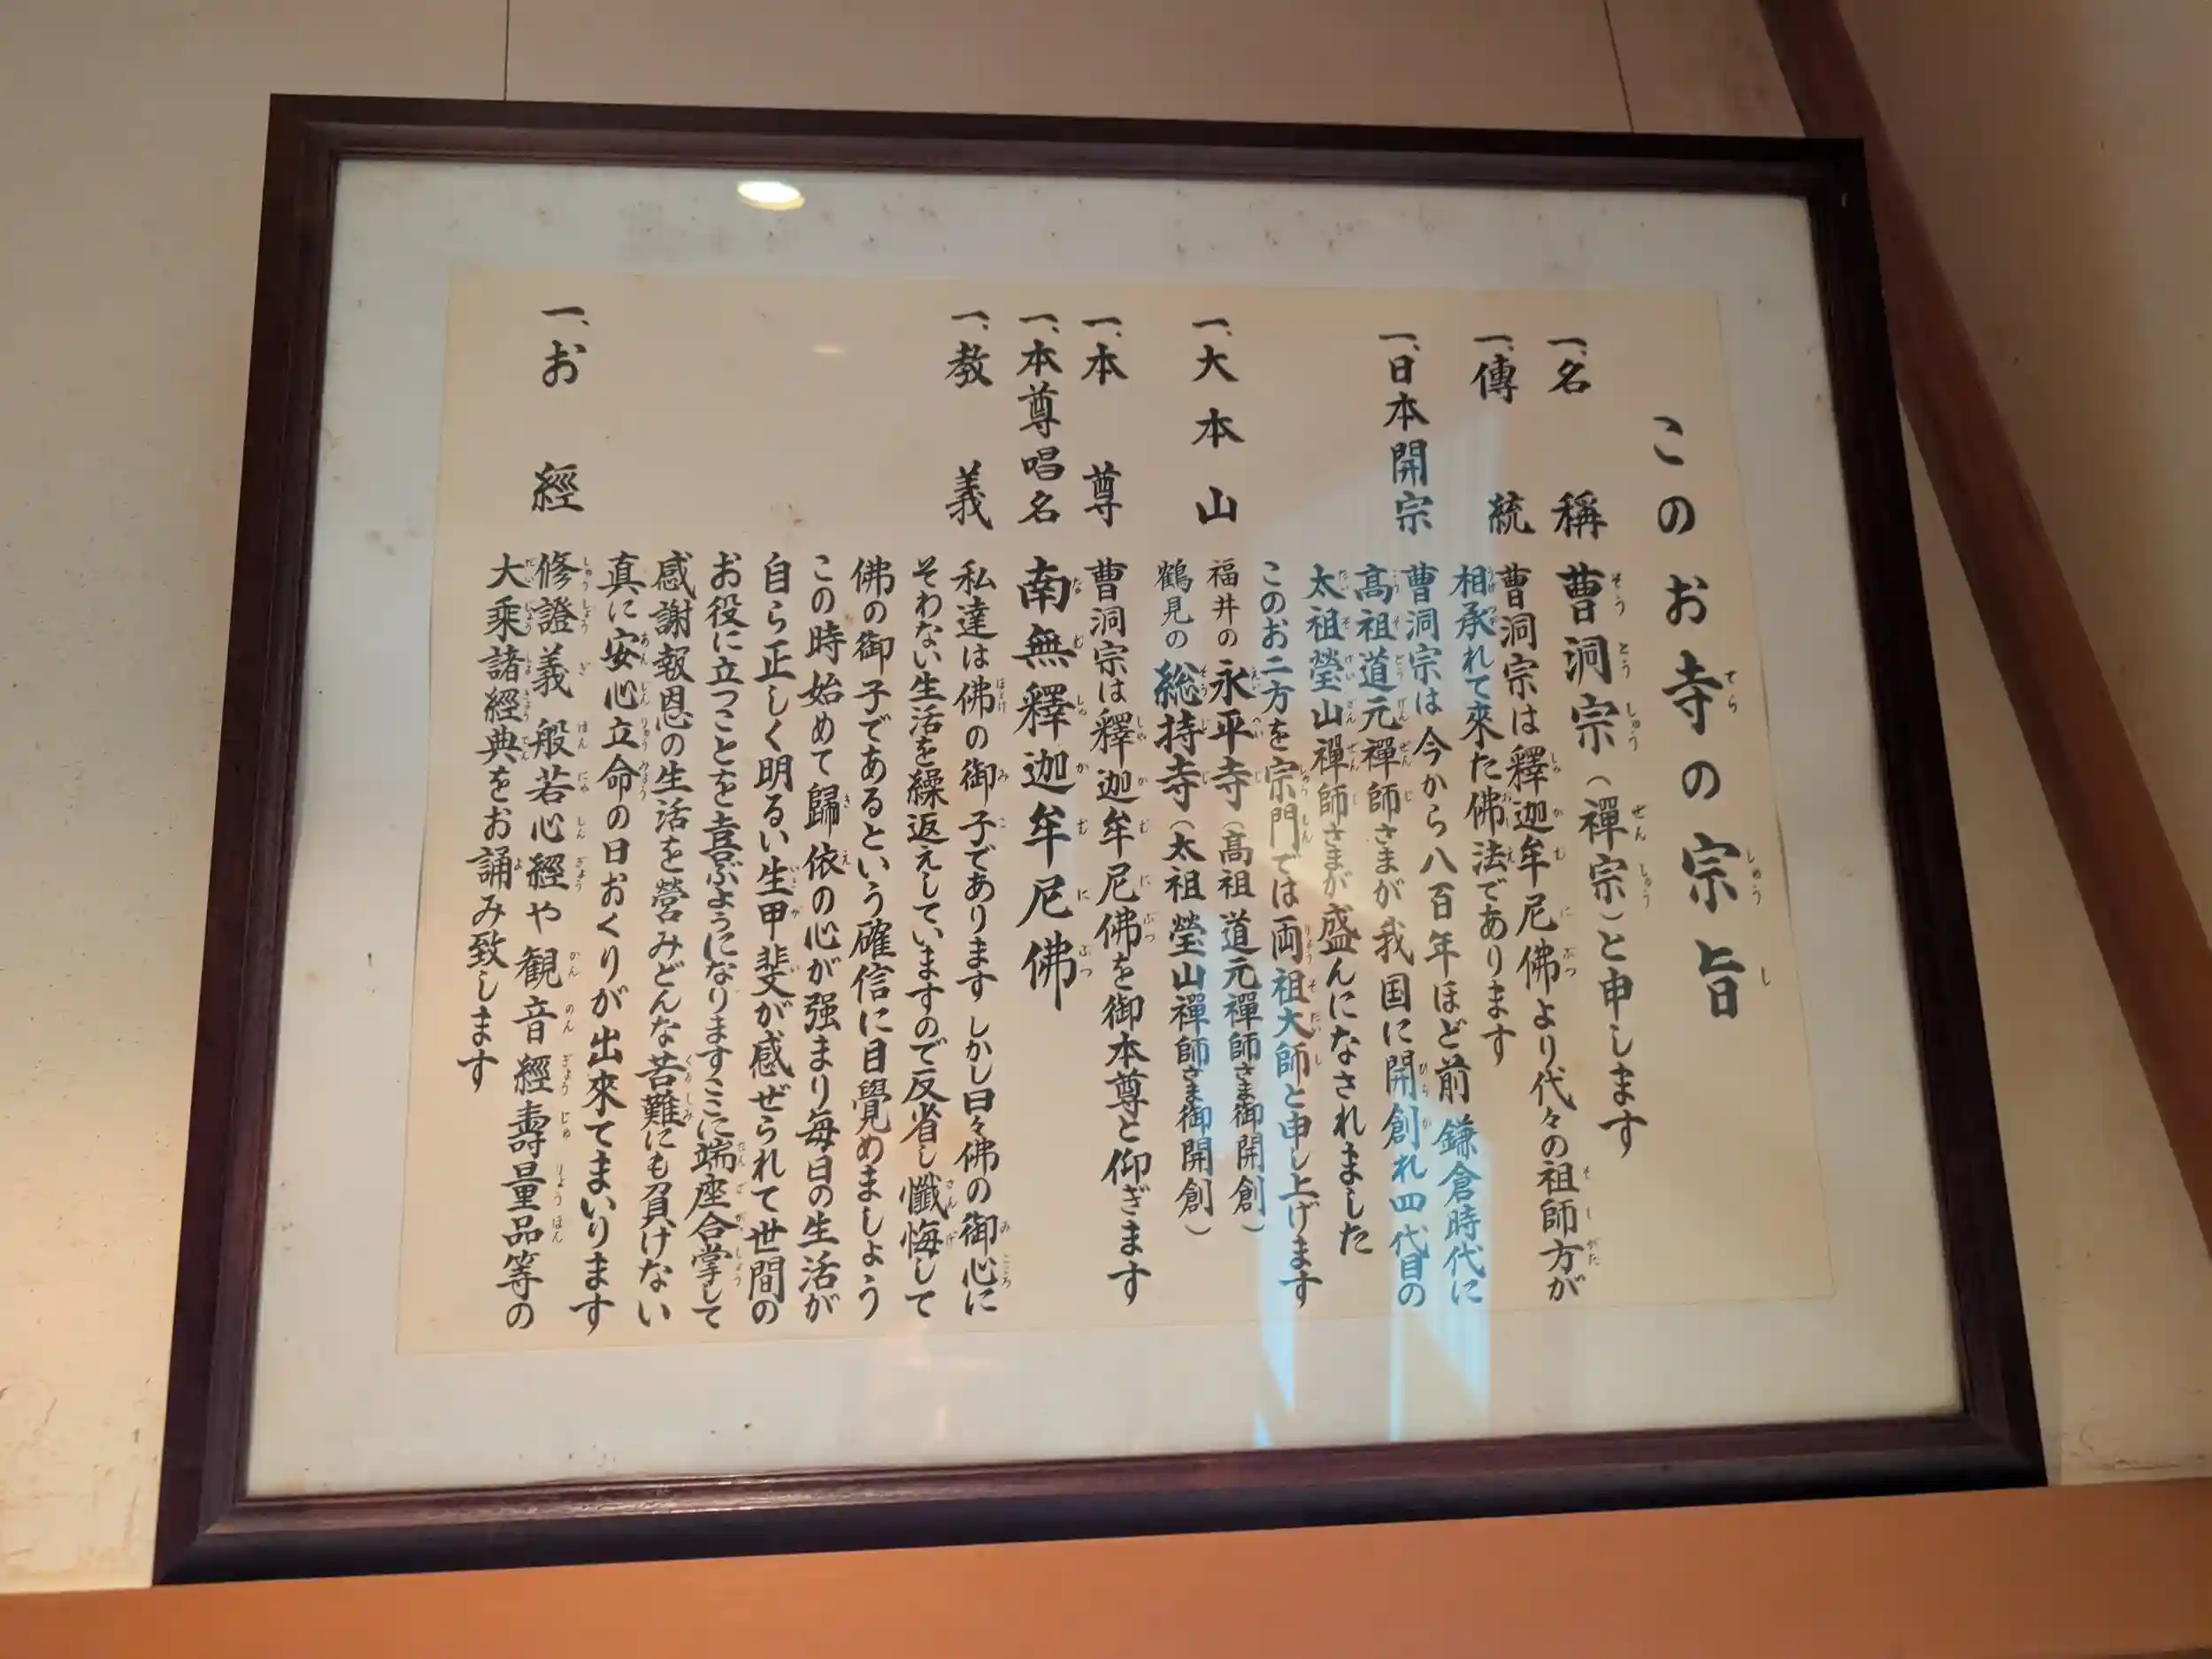 このお寺の宗旨
一、名稱 曹洞宗（禪宗）と申します
一、傳統 曹洞宗は釋迦牟尼佛より代々の祖師方が
相承れて來た佛法であります
一、日本開宗 曹洞宗は今から八百年ほど前鎌倉時代に
高祖道元禪師さまが我国に開創れ四代目の
太祖瑩山禪師さまが盛んになされました
このお二方を宗門では両祖大師と申し上げます
一、大本山 福井の永平寺（高祖道元禪師さま御開創）
鶴見の総持寺（太祖瑩山禪師さま御開創）
一、本尊 曹洞宗は釋迦牟尼佛を御本尊と仰ぎます
一、本尊唱名 南無釋迦牟尼佛
一、教義 私達は佛の御子であります しかし日々佛の御心に
そわない生活を繰返えしていますので反省し懺悔して
佛の御子であるという確信に目覺めましょう
この時始めて歸依の心が强まり毎日の生活が
自ら正しく明るい生甲斐が感ぜられて世間の
お役に立つことを喜ぶようになりますミに端座合掌して
感謝報恩の生活を營みどんな苦難にも負けない
真に安心立命の日おくりが出來てまいります
一、お經 修證義 般若心經や観音經壽量品等の
大乘諸經典をお誦み致します